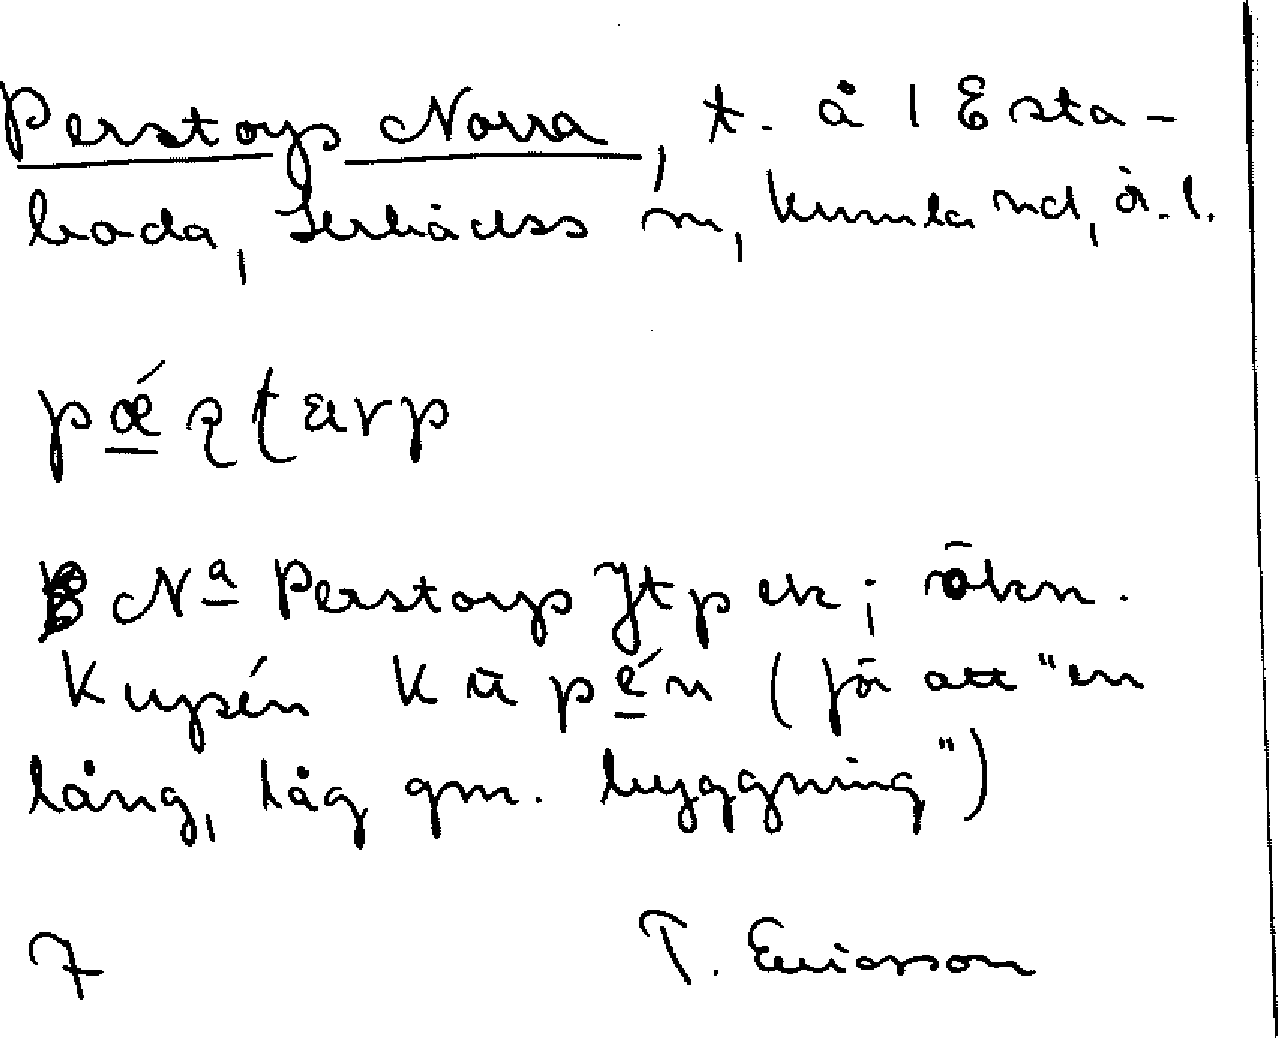 Perstorp Norra, t. å 1 Esta-
boda, Lerbäcks sn, Kumla hd, Ör. l.
pǽʂʈarp
Nª Perstorp Jtp ek; ökn.
Kupén kūpén (för att "en
lång, låg gm. byggning")
7 T. Ericsson